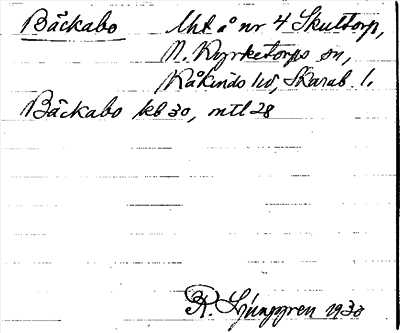 Bäckabo Lht å nr 4 Skultorp,
N. Kyrketorps sn,
Kåkinds hd, Skarab. l.
Bäckabo kb 30, mtl 28
R. Ljunggren 1930